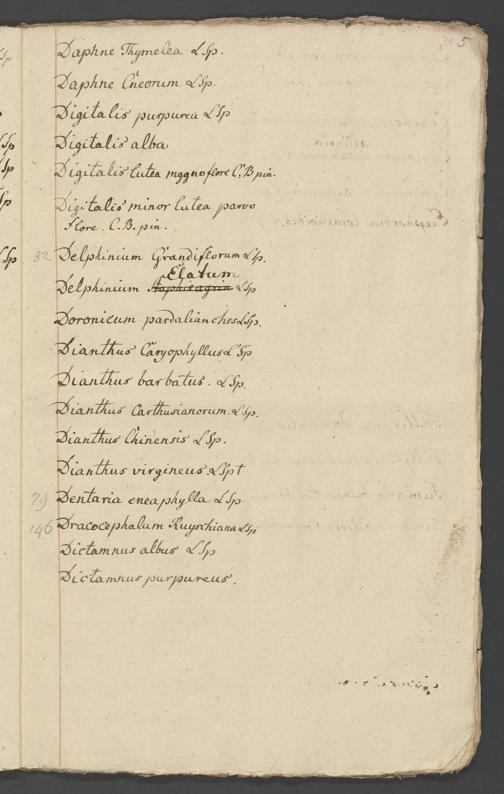 5
Daphne Thymelea LSp.
Daphne Cneorum LSp
Digitalis purpurea LSp
Digitalis alba
Digitalis lutea magno flore C.B. pin.
Digitalis minor lutea parvo
flore. C.B. pin.
82 Delphinium Grandiflorum LSp.
Elatum
Delphinium Staphisagria LSp
Doronicum pardalianches LSp.
Dianthus Caryophyllus LSp
Dianthus barbatus. LSp.
Dianthus Carthusianorum. LSp.
Dianthus Chinensis LSp.
Dianthus virgineus LSpt
79 Dentaria eneaphylla LSp
146 Dracocephalum Ruyschiana LSp
Dictamnus albus LSp
Dictamnus purpureus.